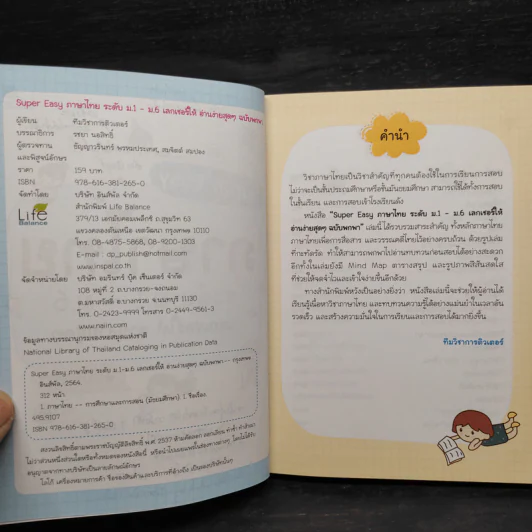 Super Easy ภาษาไทย ระดับ ม.1 - ม.6 เลกเชอร์ให้ อ่านง่ายสุดๆ ฉบับพกพา
ผู้เขียน ทีมวิชาการติวเตอร์
บรรณาธิการ วรยา นอสิทธิ์
ผู้ตรวจทาน
และพิสูจน์อักษร
ราคา 159 บาท
ISBN 978-616-381-265-0
จัดทำโดย บริษัท อินส์พัล จำกัด
สำนักพิมพ์ Life Balance
Life
Balance
379/13 เอกมัยคอมเพล็กซ์ ถ.สุขุมวิท 63
แขวงคลองตันเหนือ เขตวัฒนา กรุงเทพฯ 10110
โทร. 08-4875-5868, 08-9200-1203
E-mail : cp_publish@hotmail.com
www.inspal.co.th
จัดจำหน่ายโดย บริษัท อมรินทร์ บุ๊ค เซ็นเตอร์ จำกัด
108 หมู่ที่ 2 ถ.บางกรวย-จงถนอม
ต.มหาสวัสดิ์ อ.บางกรวย จ.นนทบุรี 11130
โทร. 0-2423-9999 โทรสาร 0-2449-9561-3
www.naiin.com
ข้อมูลทางบรรณานุกรมของหอสมุดแห่งชาติ
National Library of Thailand Cataloging in Publication Data
Super Easy ภาษาไทย ระดับ ม.1-ม.6 เลกเชอร์ให้ อ่านง่ายสุดๆ ฉบับพกพา-- กรุงเทพฯ :
อินส์พัล, 2564.
352 หน้า
1. ภาษาไทย -- การศึกษาและการสอน (มัธยมศึกษา) I. ชื่อเรื่อง
495.9107
ISBN 978-616-381-265-0
สงวนลิขสิทธิ์ตามพระราชบัญญัติลิขสิทธิ์ พ.ศ. 2537 ห้ามคัดลอก ลอกเลียน ทำซ้ำ ทำสำเนา
ไม่ว่าส่วนหนึ่งส่วนใดหรือทั้งหมดของหนังสือนี้ หรือนำไปเผยแพร่ในช่องทางต่างๆ โดยไม่ได้รับ
อนุญาตจากทางบริษัทเป็นลายลักษณ์อักษร
โลโก้ เครื่องหมายการค้า ชื่อของสินค้าและบริการที่อ้างถึง เป็นของบริษัทนั้นๆ
คำนำ
วิชาภาษาไทยเป็นวิชาสำคัญที่ทุกคนต้องใช้ในการเรียนการสอบ
ไม่ว่าจะเป็นชั้นประถมศึกษาหรือชั้นมัธยมศึกษา สามารถใช้ได้ทั้งการสอบ
ในชั้นเรียน และการสอบเข้าโรงเรียนดัง
หนังสือ "Super Easy ภาษาไทย ระดับ ม.1 - ม.6 เลกเชอร์ให้
อ่านง่ายสุดๆ ฉบับพกพา" เล่มนี้ ได้รวบรวมสาระสำคัญ ทั้งหลักภาษาไทย
ภาษาไทยเพื่อการสื่อสาร และวรรณคดีไทยไว้อย่างครบถ้วน ด้วยรูปเล่ม
ที่กะทัดรัด ทำให้สามารถพกพาไปอ่านทบทวนก่อนสอบได้อย่างสะดวก
อีกทั้งในเล่มยังมี Mind Map ตารางสรุป และรูปภาพสีสันสดใส
ที่ช่วยให้จดจำไวและเข้าใจง่ายขึ้นอีกด้วย
ทางสำนักพิมพ์หวังเป็นอย่างยิ่งว่า หนังสือเล่มนี้จะช่วยให้ผู้อ่านได้
เรียนรู้เนื้อหาวิชาภาษาไทย และทบทวนความรู้ได้อย่างแม่นยำในเวลาอัน
รวดเร็ว และสร้างความมั่นใจในการเรียนและการสอบได้มากยิ่งขึ้น
ทีมวิชาการติวเตอร์